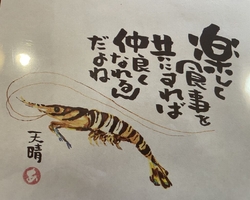 楽しく
食事を
共にすれば
仲良く
なれる
だよね
天晴